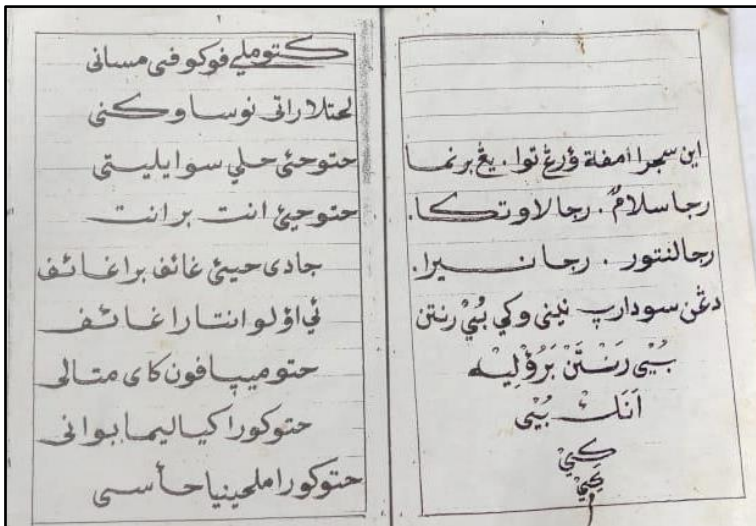 ١
اين سجرا أمفة ؤرڠ توا . يڠ برنما
رجا سلامٌ . رجا لاوتكا .
رجا لنتور . رجا نسيرا .
دڠن سودارڽ نيني وكي بُيْي رنتن
بُيْي رَنْتَنْ بَرُؤْلِيْه
اَنَكْ بُيْي
١
كتوملي فوكو فى مسانى
لحتلاراتى نوسا وكنى
حتوحئى حلي سوايليتى
حتوحيئ انت برانت
جادى حيئ غائف براغائف
ئي اؤلو انتارا غائف
حتوميڀافون كاى متالى
حتوكورا كياليما بوانى
حتوكورا ملحينيا حأسى